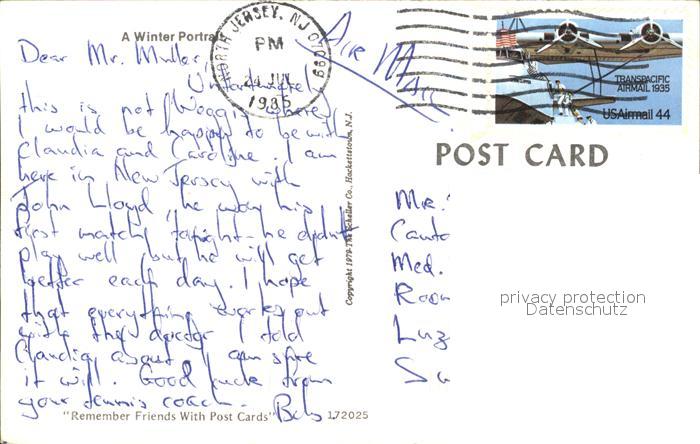 A Winter Portrait
Dear Mr. Muller,
Unfortunately
this is not Woggis where
I would be happy to be with
Claudia and Caroline. I am
here in New Jersey with
John Lloyd, he won his
first match tonight - he didn't
play well but he will get
better each day. I hope
that everything works out
with the doctor I told
Claudia about, I am sure
it will. Good luck from
your tennis coach. Bob
"Remember Friends With Post Cards"
172025
Copyright 1979 The Scheller Co., Hackettstown, N.J.
NORTH JERSEY, NJ 070 #9
PM
24 JUL
1985
AIR MAIL
TRANSPACIFIC
AIRMAIL 1935
USAirmail 44
POST CARD
Mr.
Canto
Med.
Room
Luz
Su
privacy protection
Datenschutz